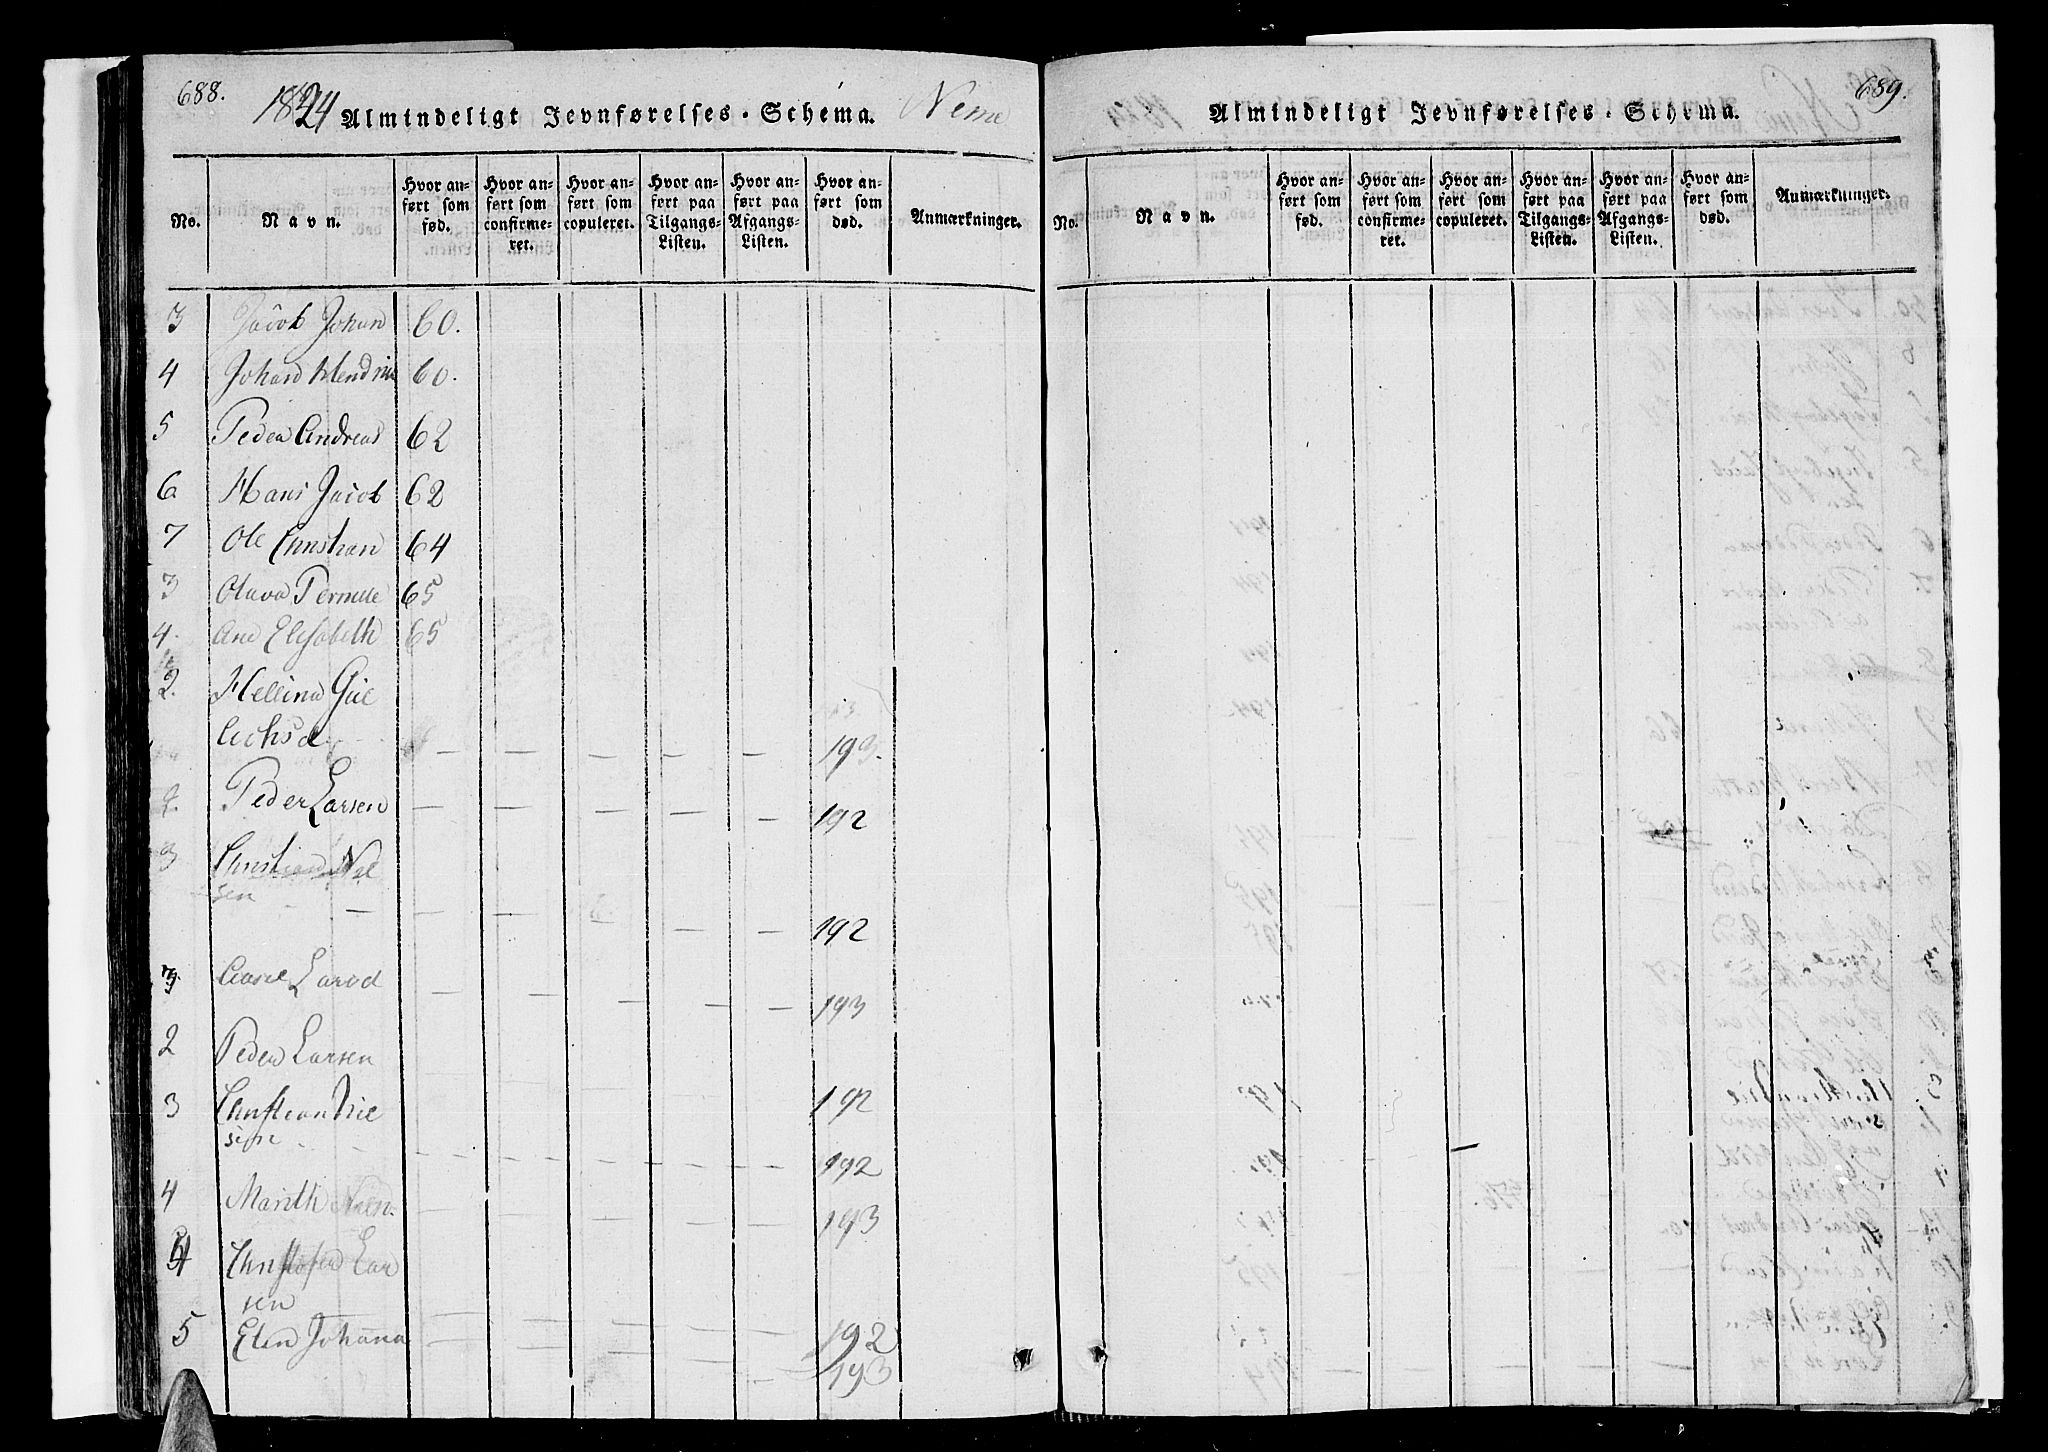 688.
1824 Almindeligt Jevnførelses-Schema.
No.
Navn.
Hvor anført som fød.
Hvor anført som confirmeret.
Hvor anført som copuleret.
Hvor anført paa Tilgangs-Listen.
Hvor anført paa Afgangs-Listen.
Hvor anført som død.
Anmærkninger.
3 Jacob Johan 60.
4 Johan Hendrik 60.
5 Peder Andreas 62
6 Hans Jacob 62
7 Ole Christian 64
3 Olava Pernille 65
4. Ane Elisabeth 65
2. Hellina
193.
2. Peder Larsen — — — — — 192
3 Christian Niel
sen — — — — — 192
3. Larsd — — — — — 193
2 Peder Larsen 192
3 Christian Niel
sen — — — — — 192
4 Marith 193
4 Christofer Lar
sen 192
5 Elen Johanna 193
689.
Almindeligt Jevnførelses-Schema.
No.
Navn.
Hvor anført som fød.
Hvor anført som confirmeret.
Hvor anført som copuleret.
Hvor anført paa Tilgangs-Listen.
Hvor anført paa Afgangs-Listen.
Hvor anført som død.
Anmærkninger.